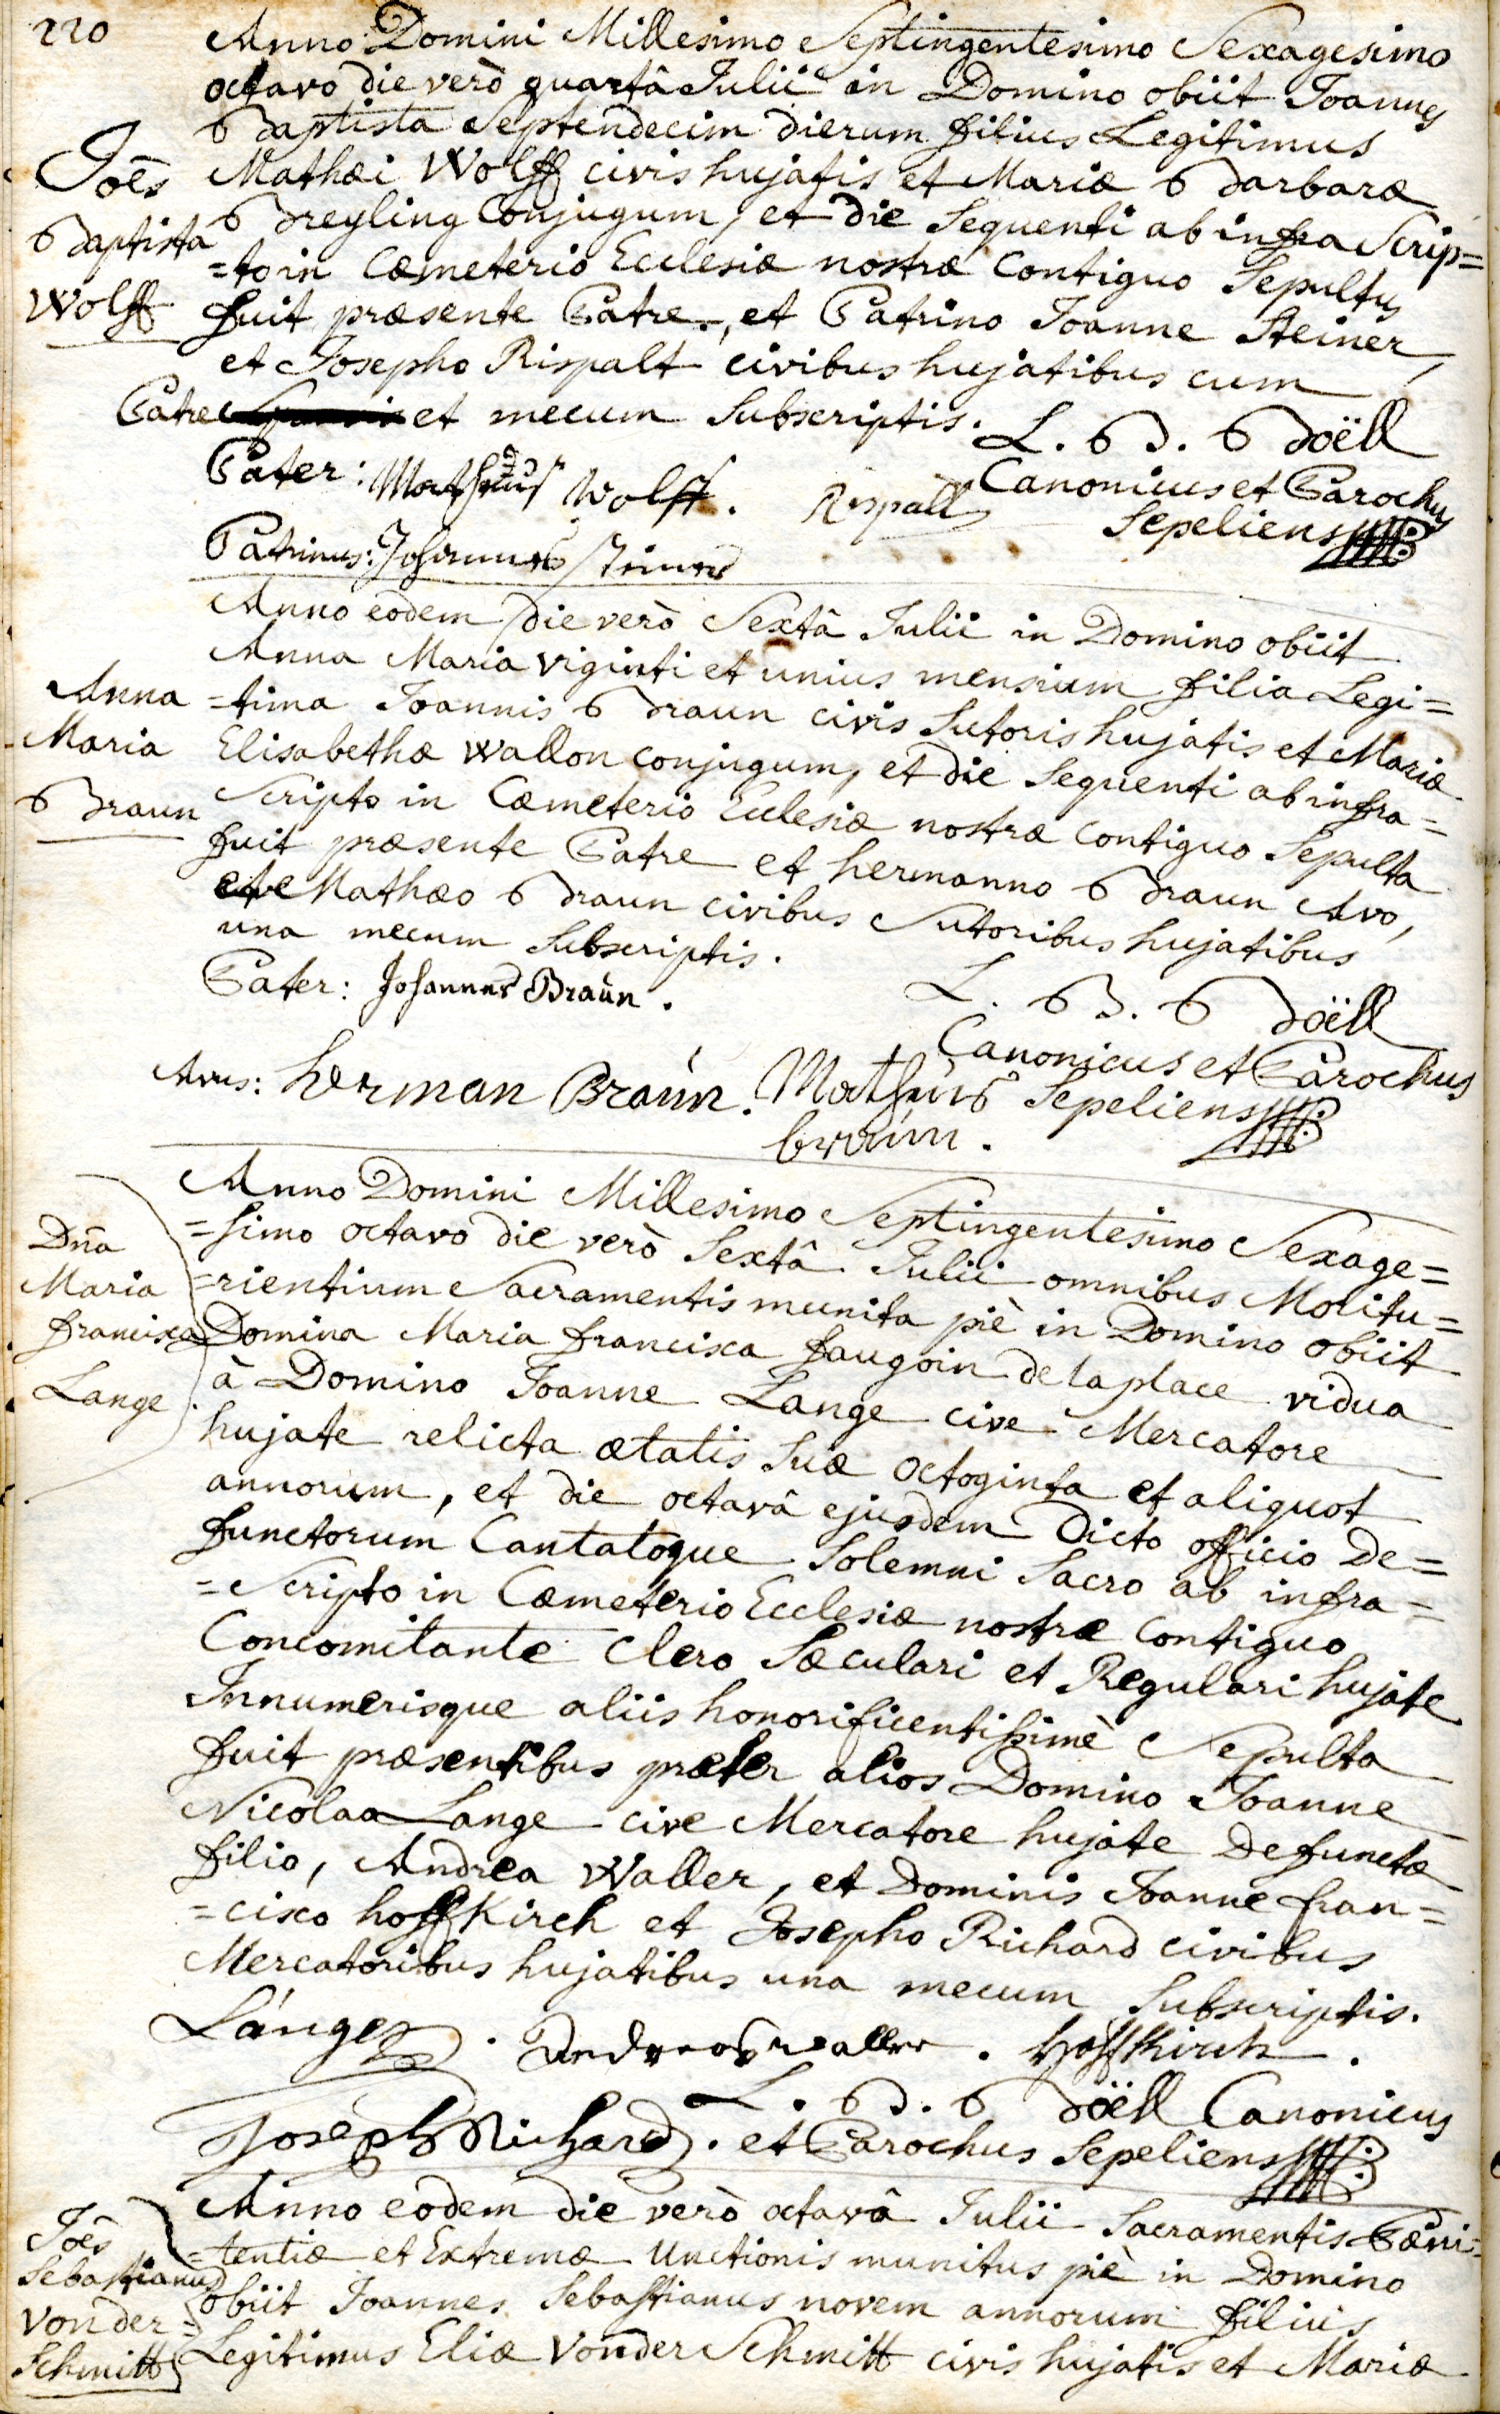 220
Anno Domini Millesimo Septingentesimo Sexagesimo
octavo die verò quartâ Julii in Domino obiit Joannes
Baptista Septendecim dierum filius Legitimus
Joēs
Mathæi Wolff civis hujatis et Mariæ Barbaræ
Baptista
Breyling Conjugum, et die Sequenti ab infra Scrip=
=to in Cæmeterio Ecclesiæ nostræ Contiguo Sepultus
Wolff
fuit præsente Patre, et Patrino Joanne Steiner,
et Josepho Rispalt civibus hujatibus cum
Patre et mecum Subscriptis.
L. B. Böell
Canonicus et Parochus
Sepeliens
Pater: Mathéus Wolff. Rispall
Patrinus: Johannes Steiner
Anno eodem die verò Sextâ Julii in Domino obiit
Anna Maria viginti et unius mensium filia Legi=
Anna
=tima Joannis Braun civis Sutoris hujatis et Mariæ
Maria
Elisabethæ Wallon conjugum, et die Sequenti ab infra=
Braun
Scripto in Cæmeterio Ecclesiæ nostræ Contiguo Sepulta
fuit præsente Patre et hermanno Braun Avo,
et Mathæo Braun civibus Sutoribus hujatibus
una mecum Subscriptis.
Pater: Johannes Braün.
L. B. Böell
Canonicus et Parochus
Sepeliens
Avus: herman Braün. Mathias
braün.
Anno Domini Millesimo Septingentesimo Sexage=
Dña
=simo octavo die verò Sextâ Julii omnibus Moritu=
Maria
=rientium Sacramentis munita piè in Domino obiit
francisca
Domina Maria francisca faugoin de laplace vidua
Lange
à Domino Joanne Lange cive Mercatore
hujate relicta ætatis Suæ octoginta et aliquot
annorum, et die octavâ ejusdem Dicto officio De=
functorum Cantatoque Solemni Sacro ab infra=
=Scripto in Cæmeterio Ecclesiæ nostræ Contiguo
Concomitante Clero Sæculari et Regulari hujate
Innumerisque aliis honorificentissimè Sepulta
fuit præsentibus præter alios Domino Joanne
Nicolao Lange cive Mercatore hujate Defunctæ
filio, Andrea Waller, et Dominis Joanne fran=
=cisco hoffKirch et Josepho Richard civibus
Mercatoribus hujatibus una mecum Subscriptis.
Lánge. Andreas waller. Hoffkirch.
L. B. Böell Canonicus
Joseph Richard. et Parochus Sepeliens
Anno eodem die verò octavâ Julii Sacramentis Pæni=
Joēs
=tentiæ et Extremæ Unctionis munitus piè in Domino
Sebastianus
obiit Joannes Sebastianus novem annorum filius
Vonder=
Schmitt
Legitimus Eliæ VonderSchmitt civis hujatis et Mariæ